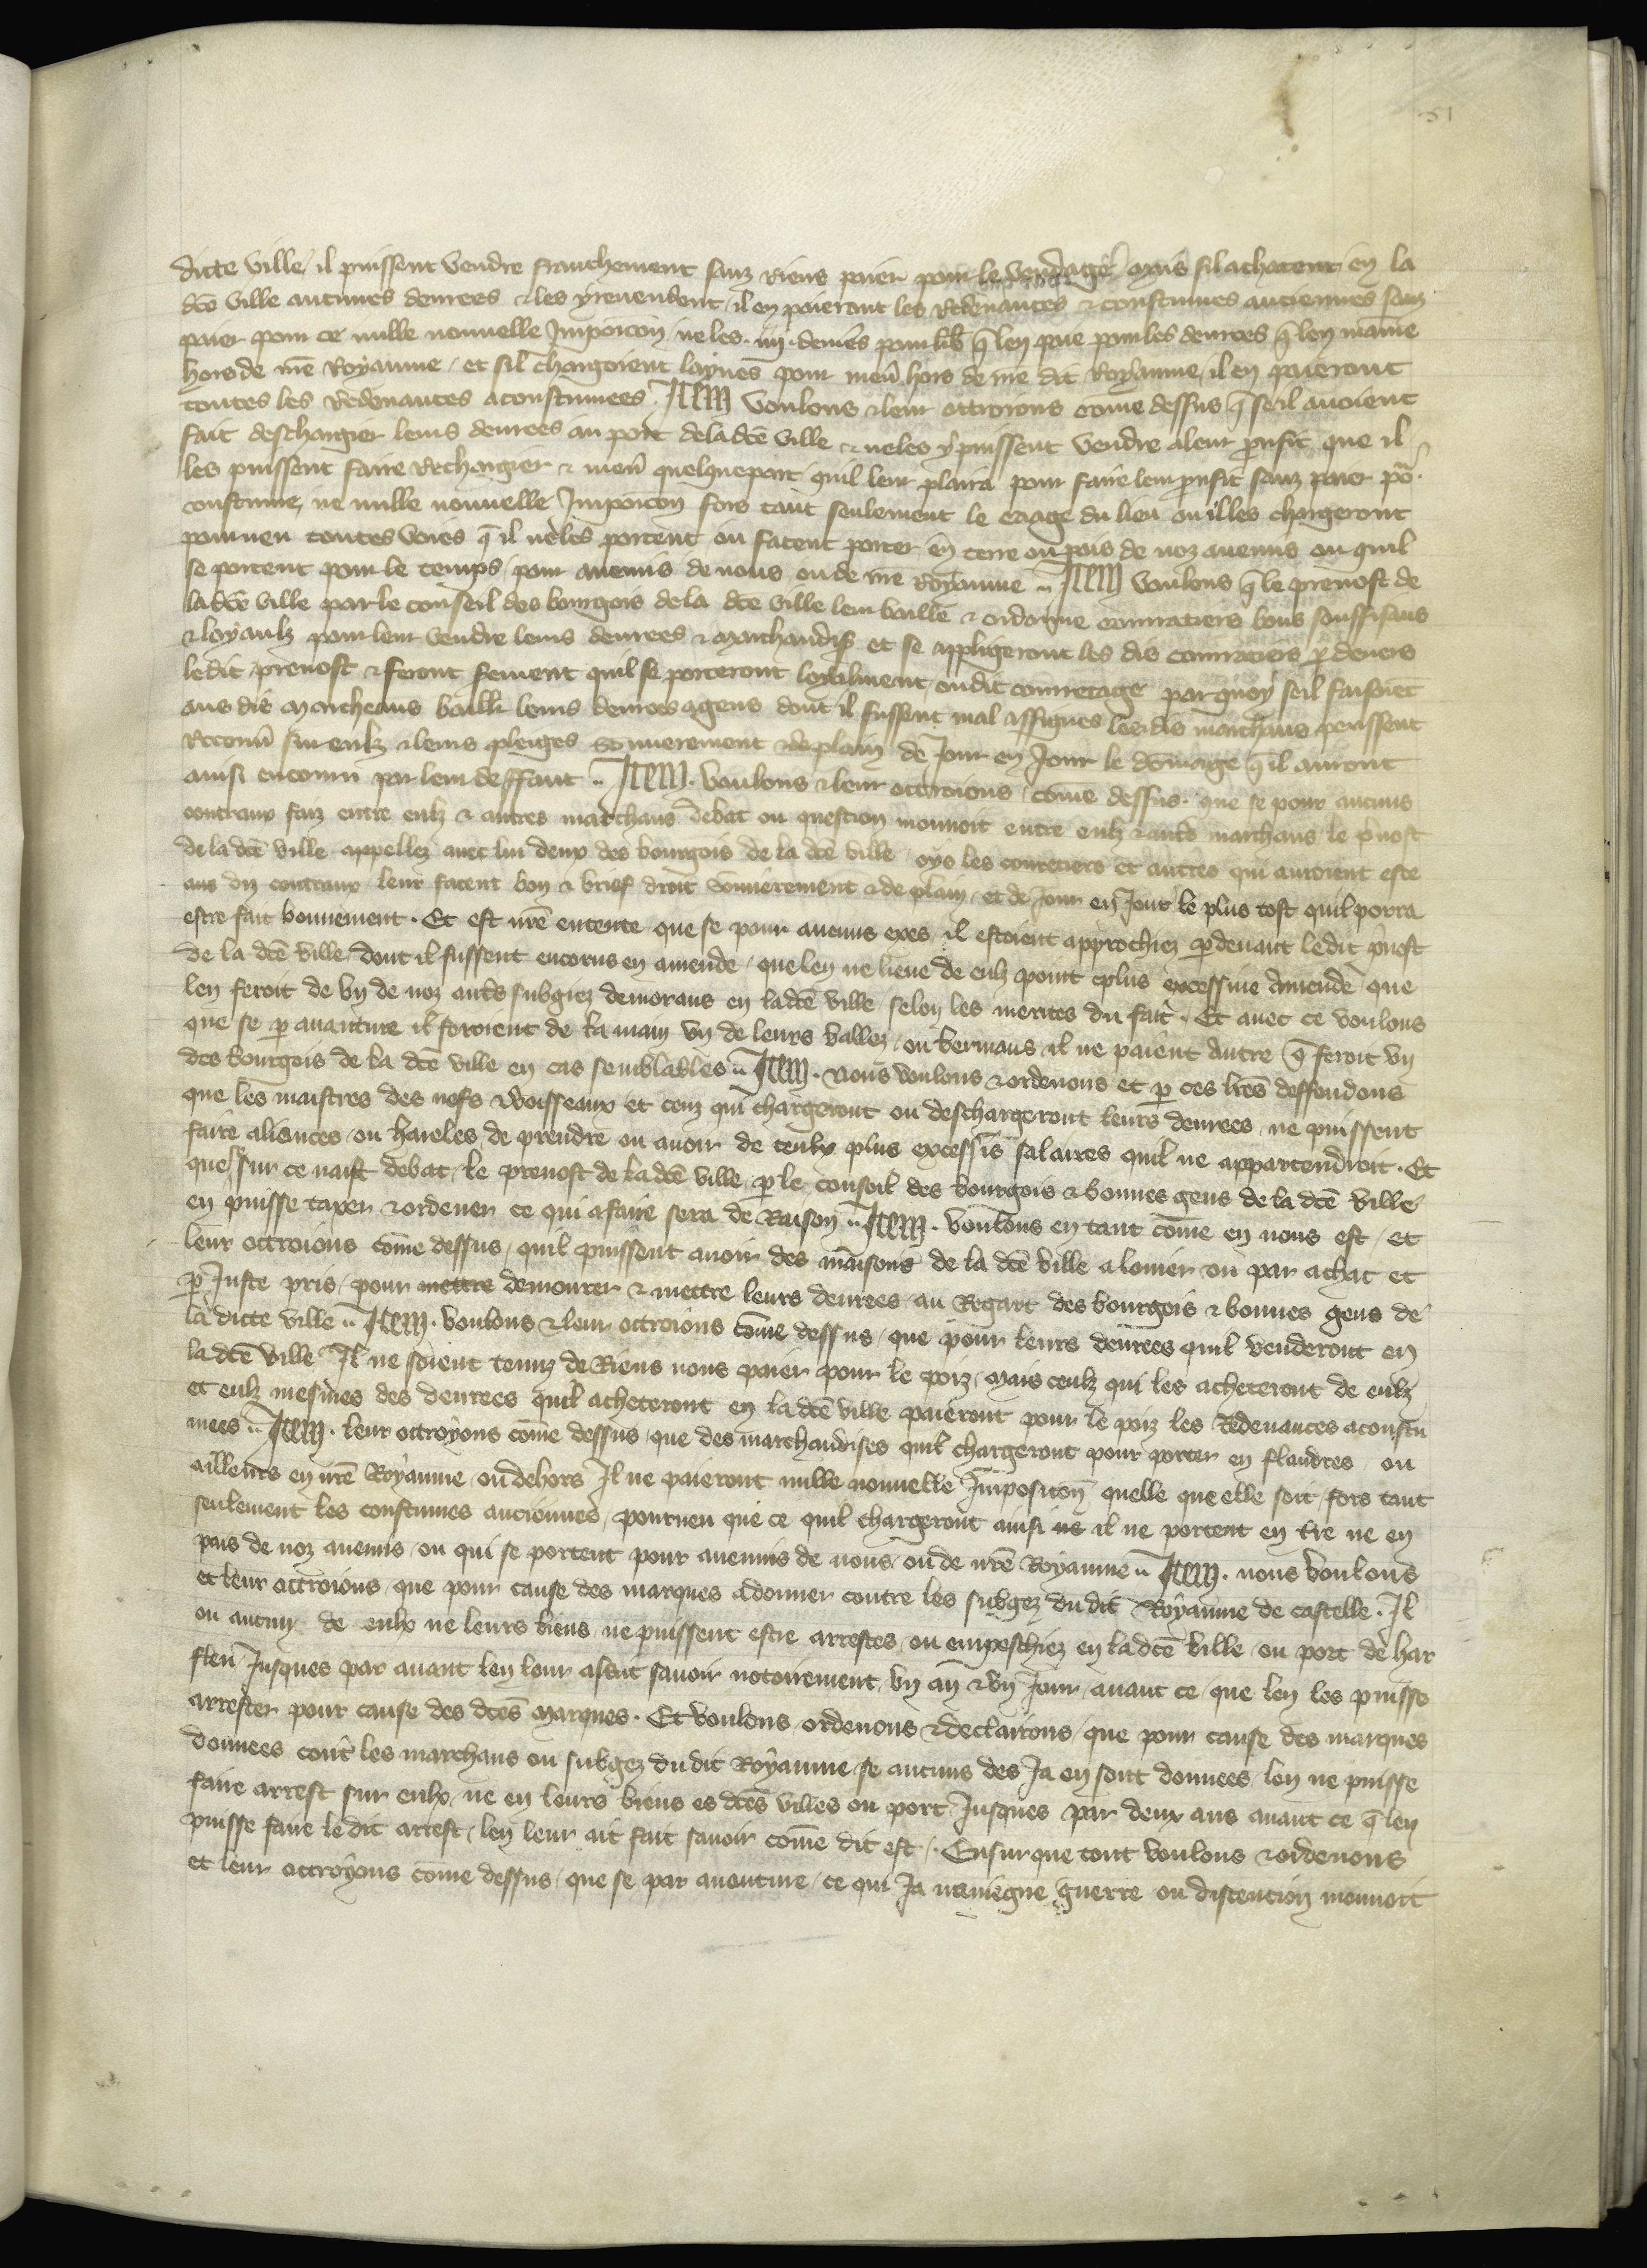 dicte ville, il puissent vendre franchement sanz riens paier pour le vendage Mais sil achatent en la
dcē ville aucunes denrees & les y revendent, il en paieront les redevances & coustumes anciennes sanz
paier pour ce nulle nouvelle Imposicōn ne les .iiij. denīes pour lib q̄ len paie pour les denrees q̄ len maine
hors de nrē Royaume, et sil chargoient laynes pour men̄ hors de nrē dit Royaume, il en paieront
toutes les Redevances acoustumees. Item voulons & leur ottroions cōme dessus q̄ se il avoient
fait deschargier leurs denrees au port de la dcē ville & ne les y puissent vendre a leur proufit, que il
les puissent faire Rechargier & men̄ quelque part quil leur plaira pour faire leur proufit sanz paier po᷑
coustume, ne nulle nouvelle Imposicōn fors tant seulement le coage du lieu ou illes chargeront
pourveu toutes voies q̄ il ne les portent, ou facent porter en terre ou pais de noz anemis ou quil
se portent pour le temps, pour anemis de nous ou de nrē Royaume .. Item voulons q̄ le prevost de
la dcē ville par le conseil des bourgois de la dcē ville leur baille & ordonne courratiers bons souffisans
& loyaulz pour leur vendre leurs denrees & marchandis et se appligeront les dis courratiers p̱ devers
ledit prevost & feront serment quil se porteront loyalment oudit courretage par quoy se il faisoiēt
aus dis marcheans baillr leurs denrees a gens dont il fussent mal assignes les dis marchans peussent
Recouvr̄ sur eulz & leurs pleiges Somierement & de plain de Jour en Jour le dōmage q̄ il auront
ainsi encouru par leur deffaut .. Item. voulons & leur ottroions cōme dessus. que se pour aucuns
contraux faiz entre eulz & autres marchans debat ou question mouvoit entre eulz & autres marchans le p̄vost
de la dcē ville appellez avec lui deux des bourgois de la dcē ville, oys les couretiers et autres qui auroient este
aus diz contraux leur facent bon & brief droit sōmierement & de plain, et de Jour en Jour le plus tost quil porra
estre fait bonnement. Et est nrē entente que se pour aucuns exes il estoient approchiez p̱devant ledit p̄vost
de la dcē ville dont il fussent encorus en amende, que len ne lieve de eulz point plus excessive amende que
len feroit de un de noz autrēs subgiez demorans en la dcē ville selon les merites du fait. Et avec ce voulons
que se p̱ avanture il feroient de la main un de leurs vallez, ou bermans, il ne paient autre q̄ feroit un
des bourgois de la dcē ville en cas semblables .. Item. nous voulons & ordenons et p̱ ces lrēs deffendons
que les maistres des nefs & voisseaux et ceuz qui chargeront ou deschargeront leurs denrees, ne puissent
faire aliances, ou haieles, de prendre ou avoir de ceulx plus excessīs salaires quil ne appartendroit. Et
que sur ce naist debat, le prevost de la dcē ville, p̱ le conseil des bourgois & bonnes gens de la dcē ville
en puisse taxer & ordener ce qui a faire sera de Raison .. Item. voulons en tant cōme en nous est, et
leur ottroions cōme dessus, quil puissent avoir des maisons de la dcē ville a louier ou par achat et
p̱ Juste pris, pour mettre demourer & mettre leurs denrees, au Regart des bourgois & bonnes gens de
la dicte ville .. Item. voulons & leur ottroions cōme dessus, que pour leurs denrees quil venderont en
la dcē ville Il ne soient tenuz de Riens nous paier pour le poiz, Mais ceulz qui les acheteront de eulz
et eulz mesmes des denrees quil acheteront en la dcē ville paieront pour le poiz les Redevances acoustu
mees .. Item. leur ottroyons cōme dessus, que des marchandises quil chargeront pour porter en flandres ou
ailleurs en nrē Royaume ou dehors Il ne paieront nulle nouvelle Imposicōn quelle que elle soit, fors tant
seulement les coustumes anciennes, pourveu que ce quil chargeront ainsi ne il ne portent en tre ne en
pais de noz anemis, ou qui se portent pour anemis de nous, ou de nrē Royaume .. Item. nous voulons
et leur ottroions, que pour cause des marques a donner contre les subgez du dit Royaume de castelle. Il
ou aucun de eulx ne leurs biens ne puissent estre arrestes, ou empeschiez en la dcē ville ou port de har
fleu Jusques par avant len leur a fait savoir notoirement, un an & un Jour, avant ce que len les puisse
arrester pour cause des dcēs Marques. Et voulons, ordenons & declairons, que pour cause des marques
donnees contr̄ les marchans ou subgez du dit Royaume, se aucuns des Ja en sont donnees, len ne puisse
faire arrest sur eulx, ne en leurs biens es dcēs villes ou port Jusques par deux ans avant ce q̄ len
puisse faire le dit arrest, len leur ait fait savoir cōme dit est,. Ensurque tout voulons & ordenons
et leur ottroyons cōme dessus, que se par aventure, ce qui Ja naviegne guerre ou discencion mouvoit